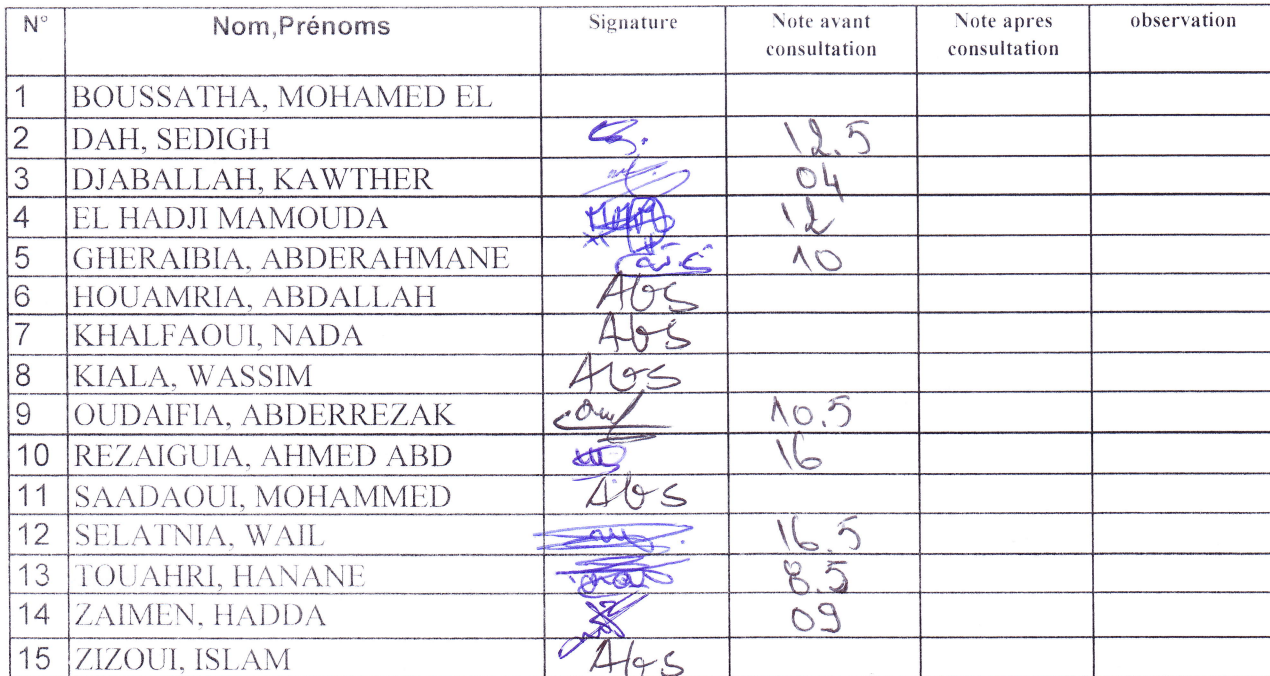 N° Nom,Prénoms Signature Note avant consultation Note apres consultation observation
1 BOUSSATHA, MOHAMED EL
2 DAH, SEDIGH 12.5
3 DJABALLAH, KAWTHER 04
4 EL HADJI MAMOUDA 12
5 GHERAIBIA, ABDERAHMANE 10
6 HOUAMRIA, ABDALLAH Abs
7 KHALFAOUI, NADA Abs
8 KIALA, WASSIM Abs
9 OUDAIFIA, ABDERREZAK 10.5
10 REZAIGUIA, AHMED ABD 16
11 SAADAOUI, MOHAMMED Abs
12 SELATNIA, WAIL 16.5
13 TOUAHRI, HANANE 8.5
14 ZAIMEN, HADDA 09
15 ZIZOUI, ISLAM Abs